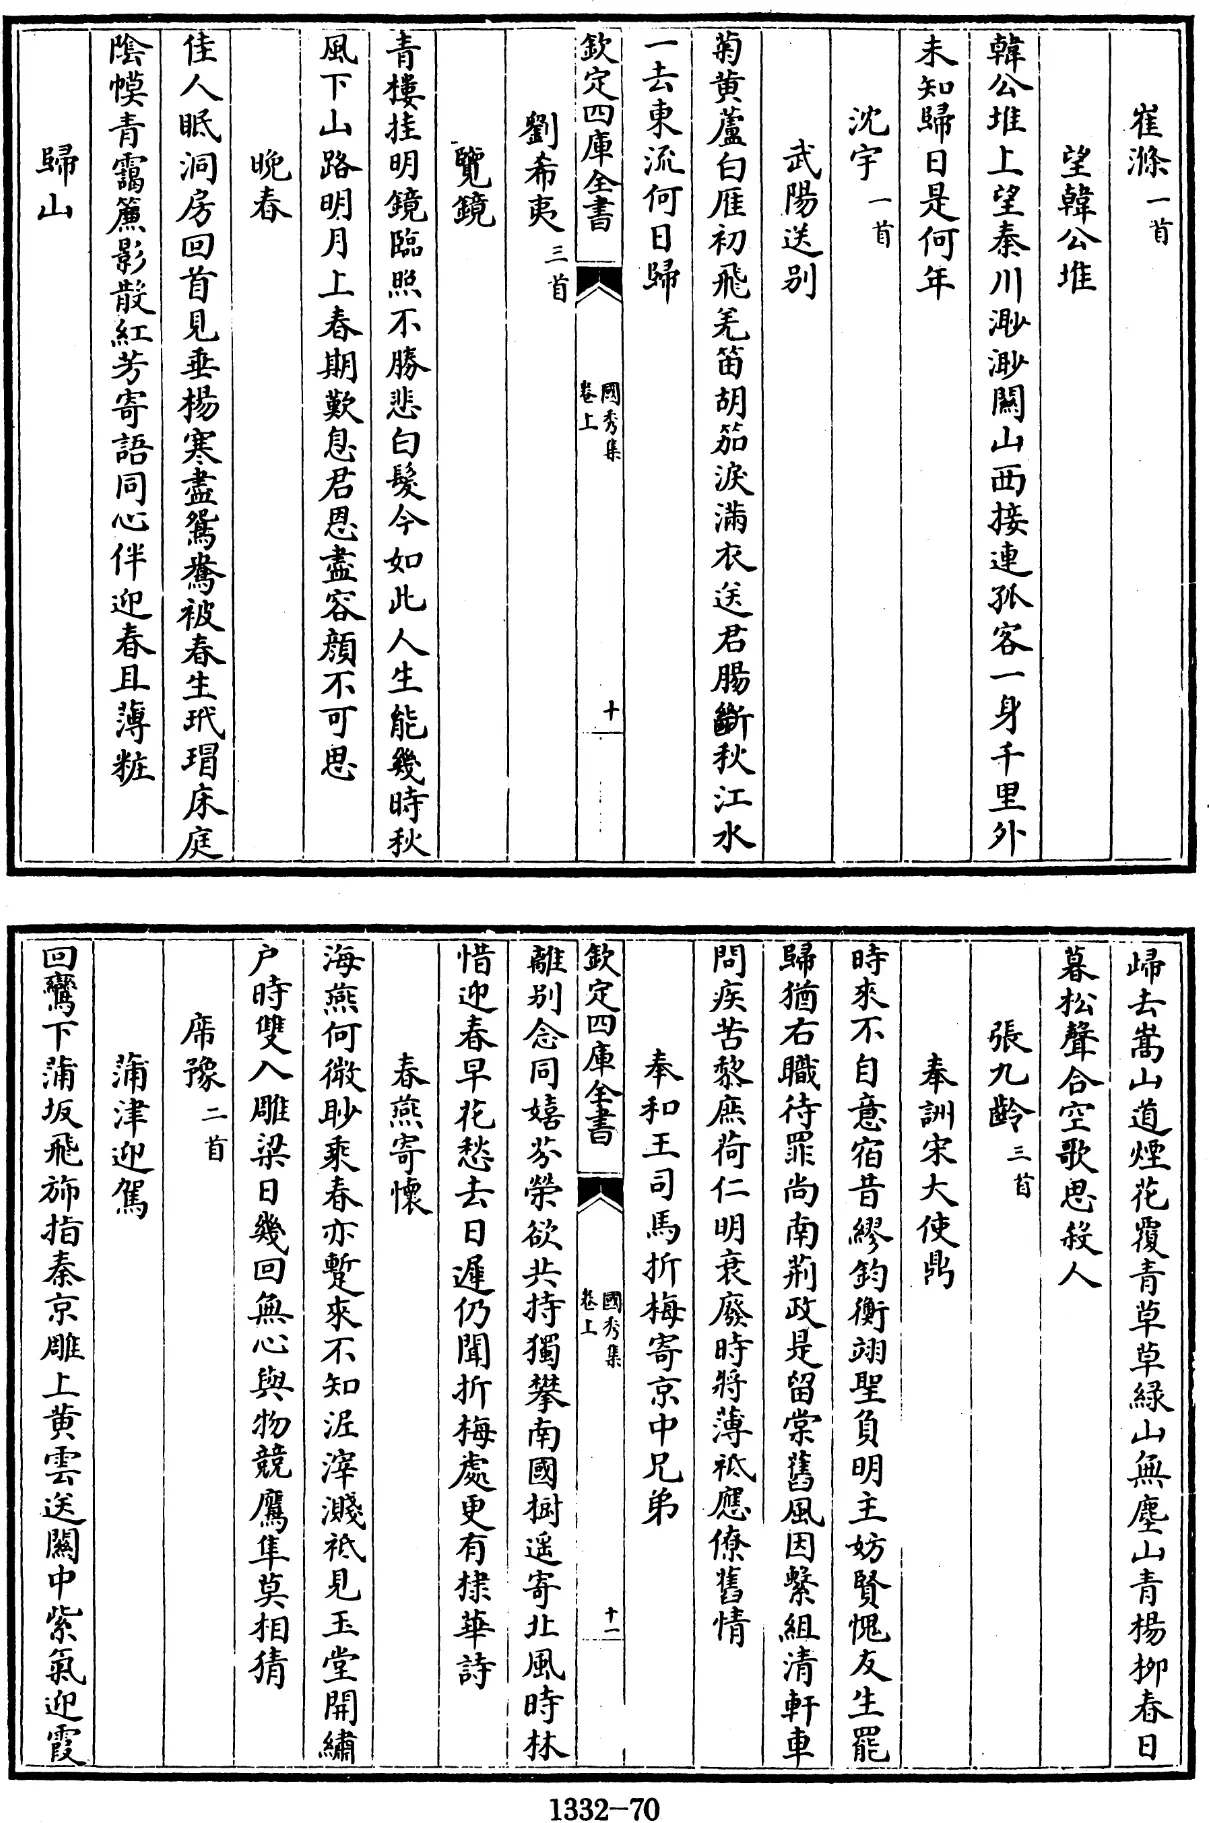 崔滌一首
望韓公堆
韓公堆上望秦川渺渺闗山西接連孤客一身千里外
未知歸日是何年
沈宇一首
武陽送别
菊黄蘆白雁初飛羌笛胡笳淚滿衣送君腸斷秋江水
一去東流何日歸
欽定四庫全書
國秀集
卷上
十
劉希夷三首
覽鏡
青樓挂明鏡臨照不勝悲白髮今如此人生能幾時秋
風下山路明月上春期歎息君恩盡容顔不可思
晚春
佳人眠洞房回首見垂楊寒盡鴛鴦被春生玳瑁床庭
隂幙青靄簾影散紅芳寄語同心伴迎春且薄粧
歸山
歸去嵩山道煙花覆青草草緑山無塵山青楊柳春日
暮松聲合空歌思殺人
張九齡三首
奉詶宋大使鼎
時來不自意宿昔繆鈞衡翊聖負明主妨賢愧友生罷
歸猶右職待罪尚南荆政是留棠舊風因繫組清軒車
問疾苦黎庶荷仁明衰廢時將薄祇應僚舊情
奉和王司馬折梅寄京中兄弟
欽定四庫全書
國秀集
卷上
十一
離别念同嬉芬榮欲共持獨攀南國樹遥寄北風時林
惜迎春早花愁去日遲仍聞折梅處更有棣華詩
春燕寄懷
海燕何微眇乘春亦蹔來不知泥滓濺祇見玉堂開繡
户時雙入雕梁日幾回無心與物競鷹隼莫相猜
席豫二首
蒲津迎駕
回鸞下蒲坂飛斾指秦京雕上黄雲送闗中紫氣迎霞
1332-70